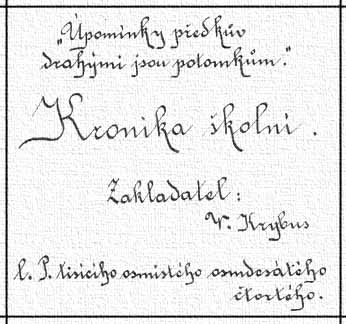 „Úpomínky předkův
drahými jsou potomkům."
Kronika školní.
Zakladatel:
V. Krybus
l. P. tisícího osmistého osmdesátého
čtvrtého.